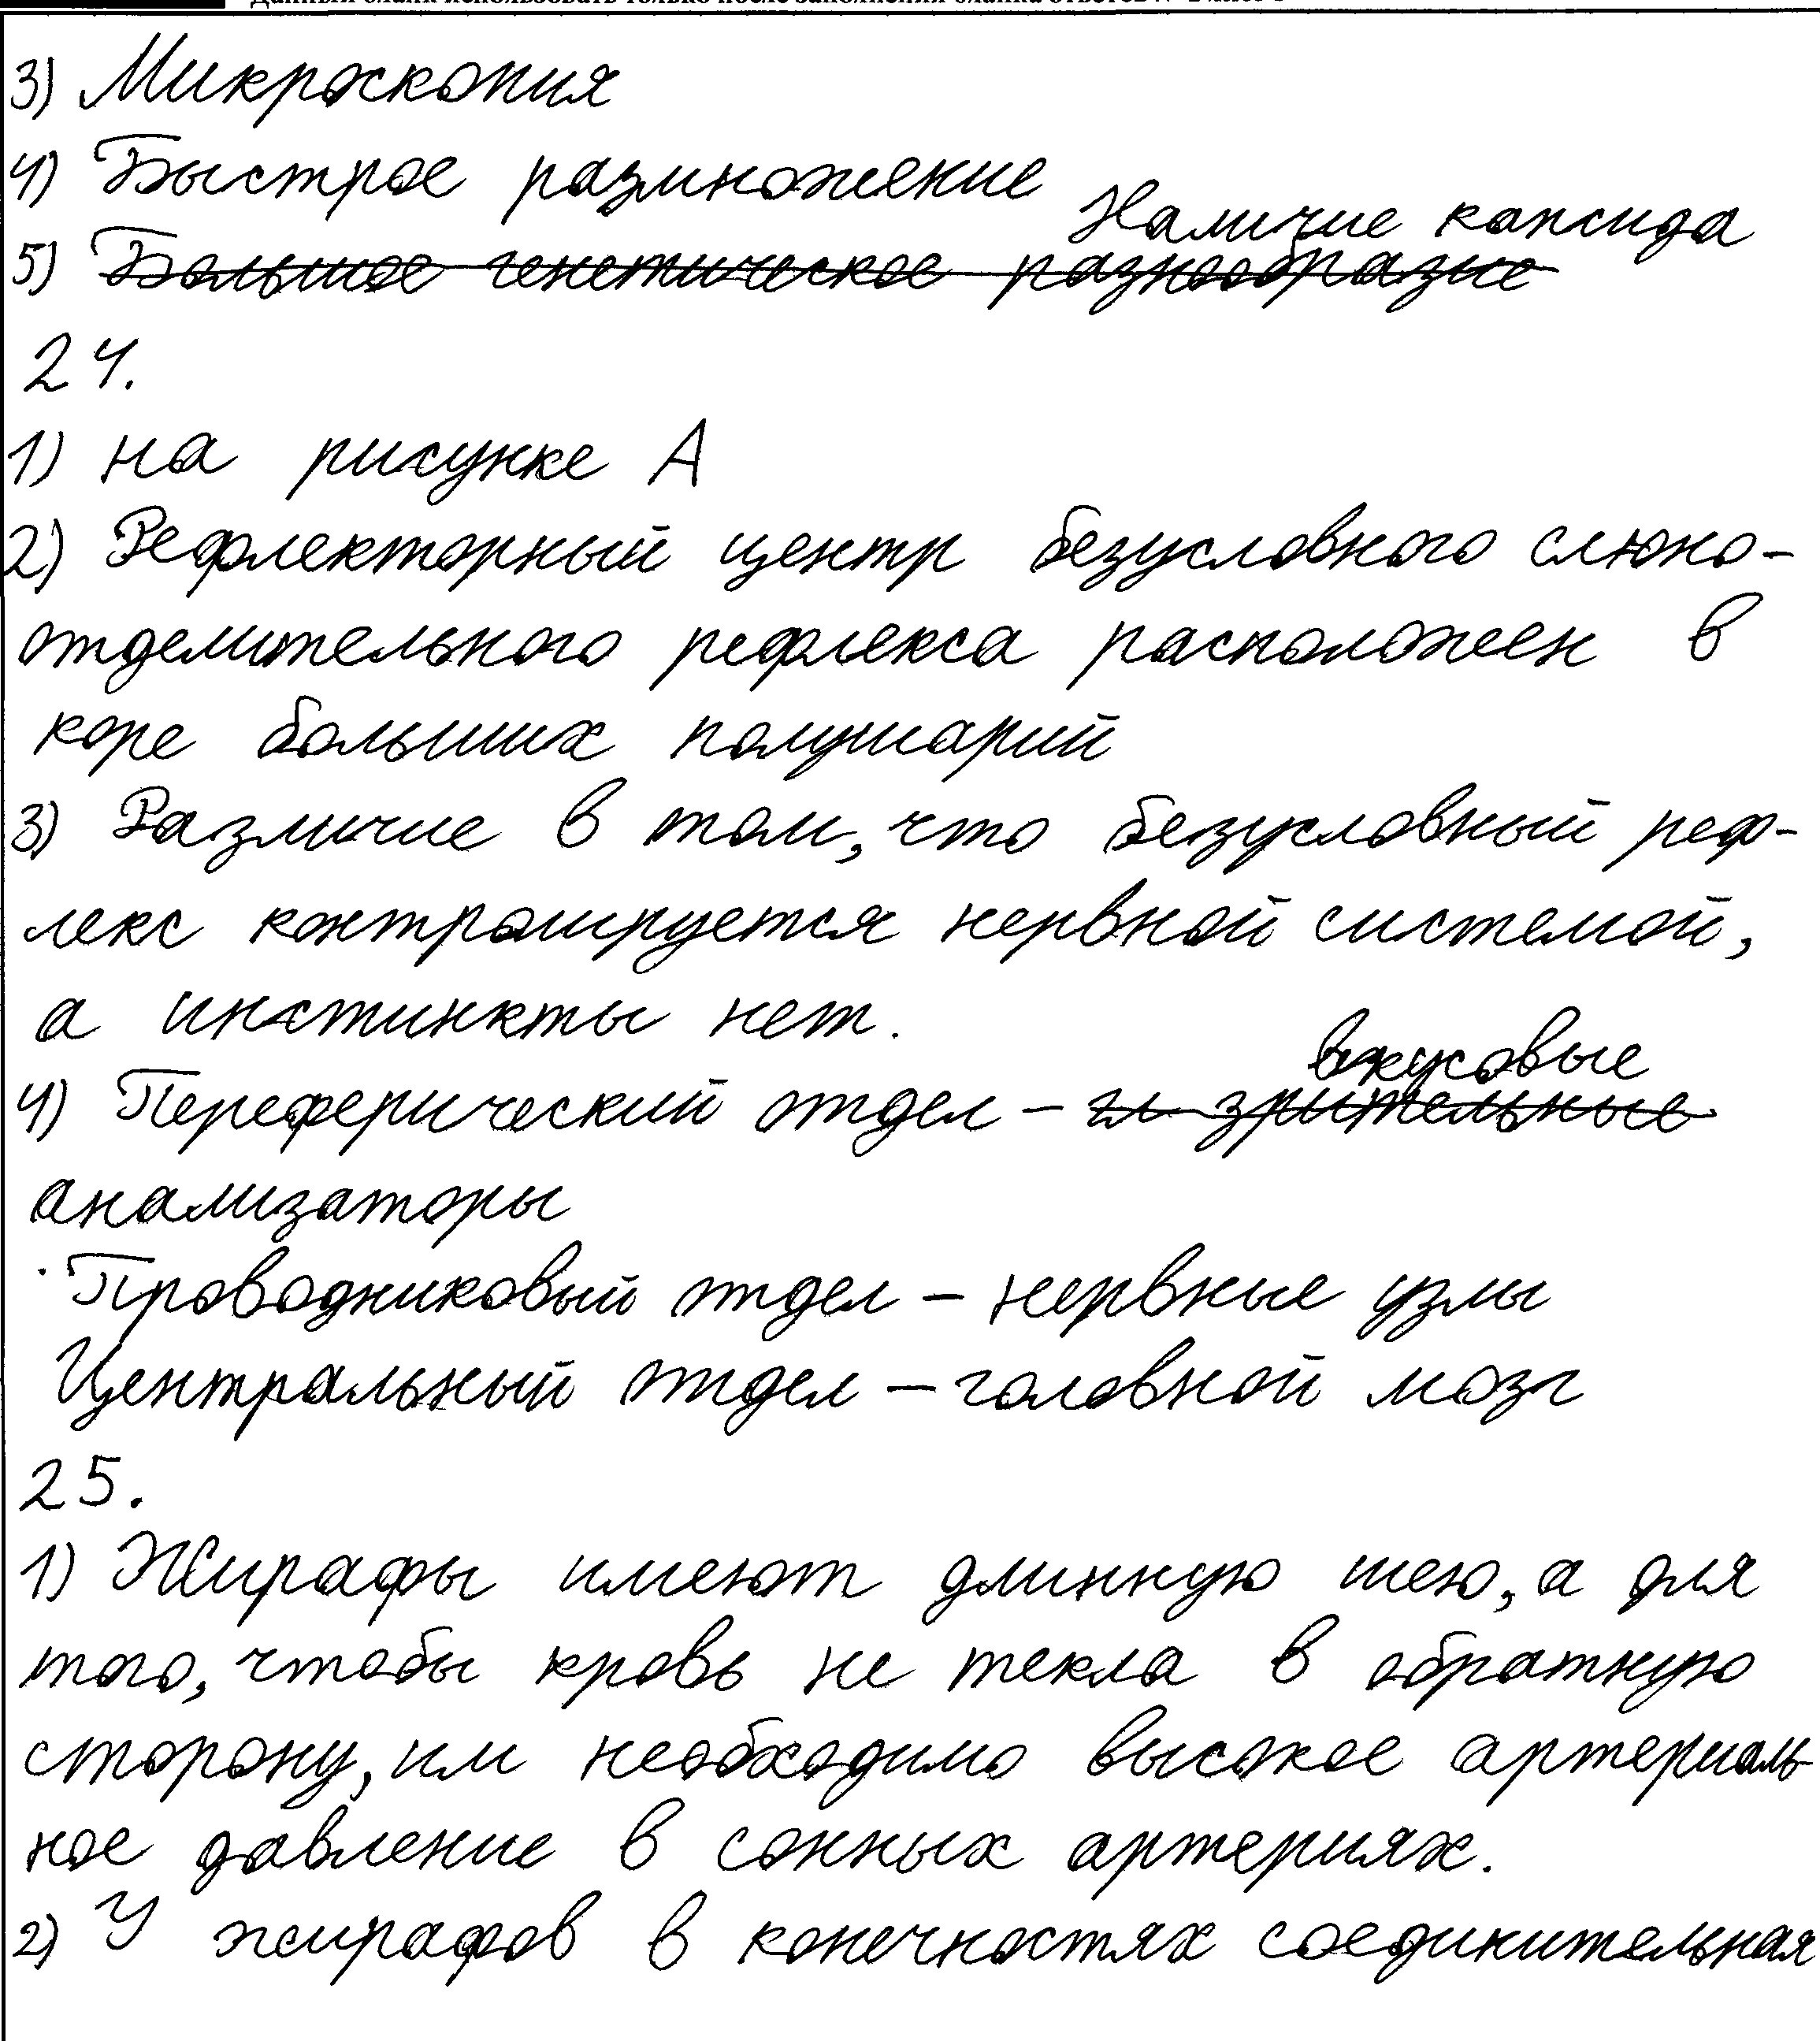 3) Микроскопия
4) Быстрое размножение
Наличие капсида
5) Большое генетическое разнообразие
24.
1) на рисунке А
2) Рефлекторный центр безусловного слюно-
отделительного рефлекса расположен в
коре больших полушарий
3) Различие в том, что безусловный реф-
лекс контролируется нервной системой,
а инстинкты нет.
вкусовые
4) Переферический отдел – гл зрительные
анализаторы
Проводниковый отдел – нервные узлы
Центральный отдел – головной мозг
25.
1) Жирафы имеют длинную шею, а для
того, чтобы кровь не текла в обратную
сторону, им необходимо высокое артериаль-
ное давление в сонных артериях.
2) У жирафов в конечностях соединительная